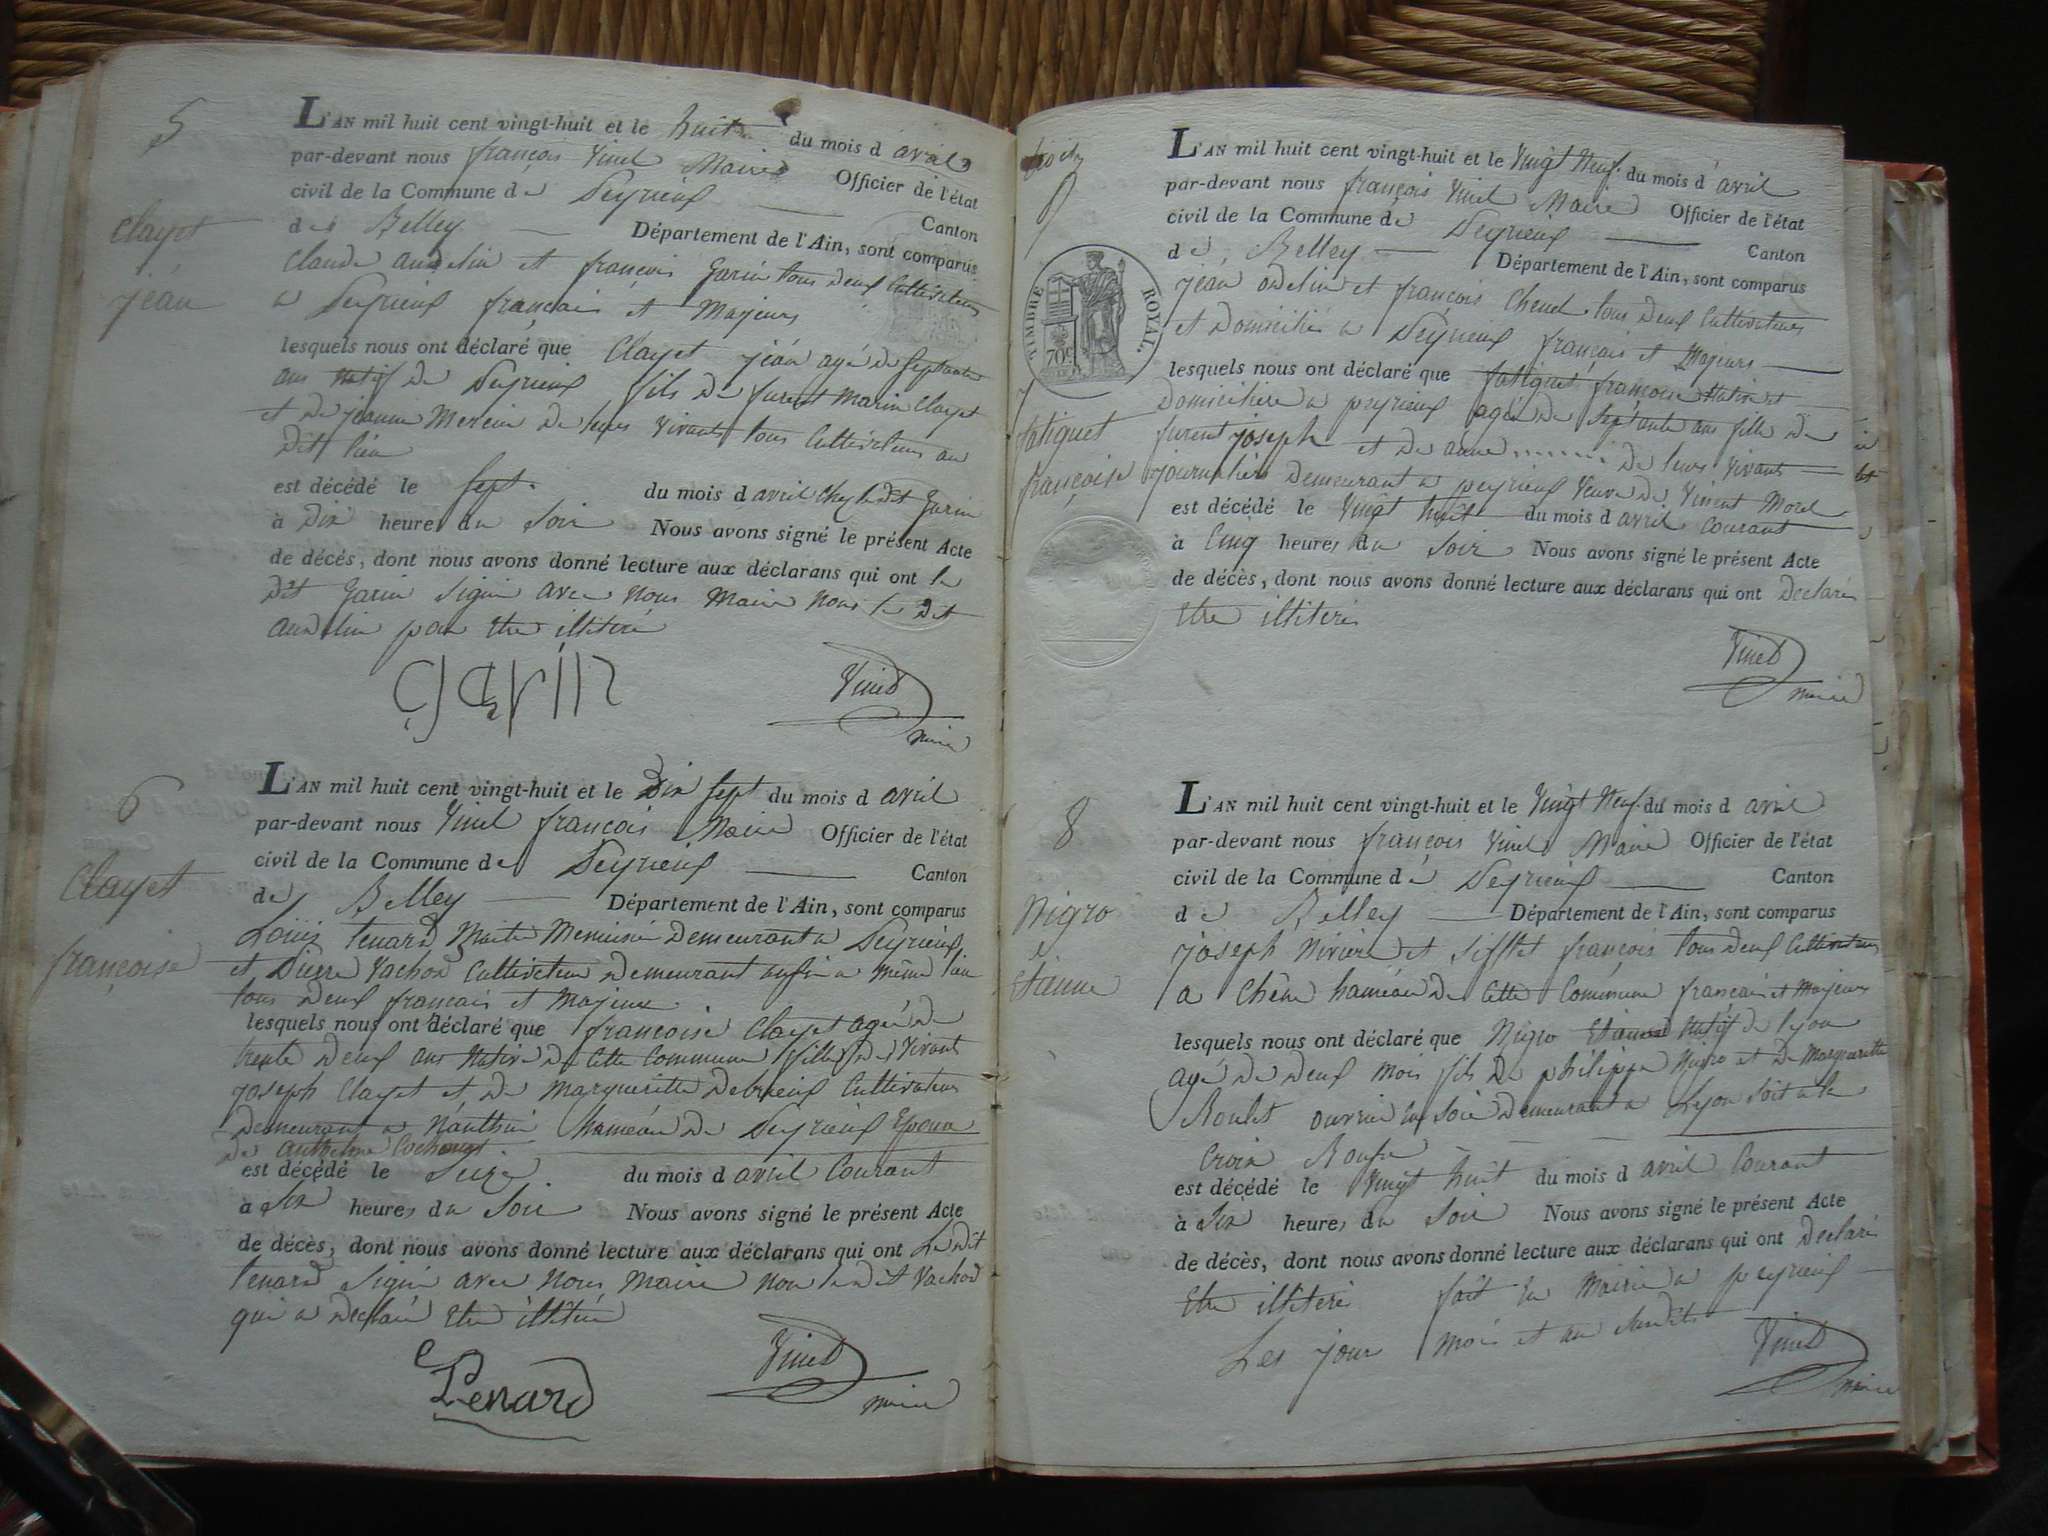 5
Clayet
jéan
L'AN mil huit cent vingt-huit et le huit du mois d avril
par-devant nous françois Vinet Maire Officier de l'état
civil de la Commune de Peyrieux Canton
de Belley Département de l'Ain, sont comparus
Claude audelin et françois Garin tous deux Cultivateurs
a Peyrieux français et Majeurs
lesquels nous ont déclaré que Clayet jéan agé de septante
ans natif de Peyrieux fils de furent Marin Clayet
et de jeanne Mercier de leurs vivants tous Cultivateurs au
dit lieu
est décédé le sept du mois d avril chez ledit Garin
à dix heures du soir Nous avons signé le présent Acte
de décès, dont nous avons donné lecture aux déclarans qui ont le
dit Garin signé avec nous maire nous le dit
audelin pour etre illitéré
garin
Vinet
maire
6
Clayet
françoise
L'AN mil huit cent vingt-huit et le Dix sept du mois d avril
par-devant nous Vinet françois Maire Officier de l'état
civil de la Commune de Peyrieux Canton
de Belley Département de l'Ain, sont comparus
Louis Lenard Maitre Menuisié demeurant a Peyrieux
et Pierre Vachod Cultivateur demeurant aussi a même lieu
tous deux français et Majeurs
lesquels nous ont déclaré que françoise Clayet agée de
trente deux ans native de cette Commune fille de vivant
joseph Clayet et de Margueritte Debrieux Cultivateurs
demeurant a Nanthui haméau de Peyrieux Epoux
de Anthelme
est décédé le seize du mois d avril Courant
à six heures du soir Nous avons signé le présent Acte
de décès, dont nous avons donné lecture aux déclarans qui ont Le dit
Lenard signé avec nous maire non ledit Vachod
qui a declaré etre illitéré
Lenard
Vinet
maire
7
TIMBRE ROYAL.
70c
fatiguet
françoise
L'AN mil huit cent vingt-huit et le Vingt Neuf du mois d avril
par-devant nous françois Vinet Maire Officier de l'état
civil de la Commune de Peyrieux Canton
de Belley Département de l'Ain, sont comparus
jean odelin et françois Chenel tous deux Cultivateurs
et Domiciliés a Peyrieux français et Majeurs
lesquels nous ont déclaré que fatiguet françoise Native et
domiciliére a peyrieux agée de septante ans fille de
furent joseph et de anne ....... de leurs vivants
journaliers demeurant a peyrieux veuve de Vincent Morel
est décédé le vingt huit du mois d avril Courant
à Cinq heures du soir Nous avons signé le présent Acte
de décès, dont nous avons donné lecture aux déclarans qui ont declarés
etre illiterés
Vinet
maire
8
Nigro
Etienne
L'AN mil huit cent vingt-huit et le Vingt Neuf du mois d avril
par-devant nous françois Vinet Maire Officier de l'état
civil de la Commune de Peyrieux Canton
de Belley Département de l'Ain, sont comparus
joseph Rivière et sifflet françois tous deux Cultivateurs
a Chêne haméau de Cette Commune français et Majeurs
lesquels nous ont déclaré que Nigro Etienne Natif de lyon
agé de deux mois fils de philippe Nigro et de Margueritte
Roulet ouvrier en soie demeurant a Lyon soit a la
Croix Rousse
est décédé le vingt huit du mois d avril Courant
à six heures du soir Nous avons signé le présent Acte
de décès, dont nous avons donné lecture aux déclarans qui ont declarés
etre illiterés fait en Mairie a peyrieux
Les jour mois et an susdits
Vinet
maire